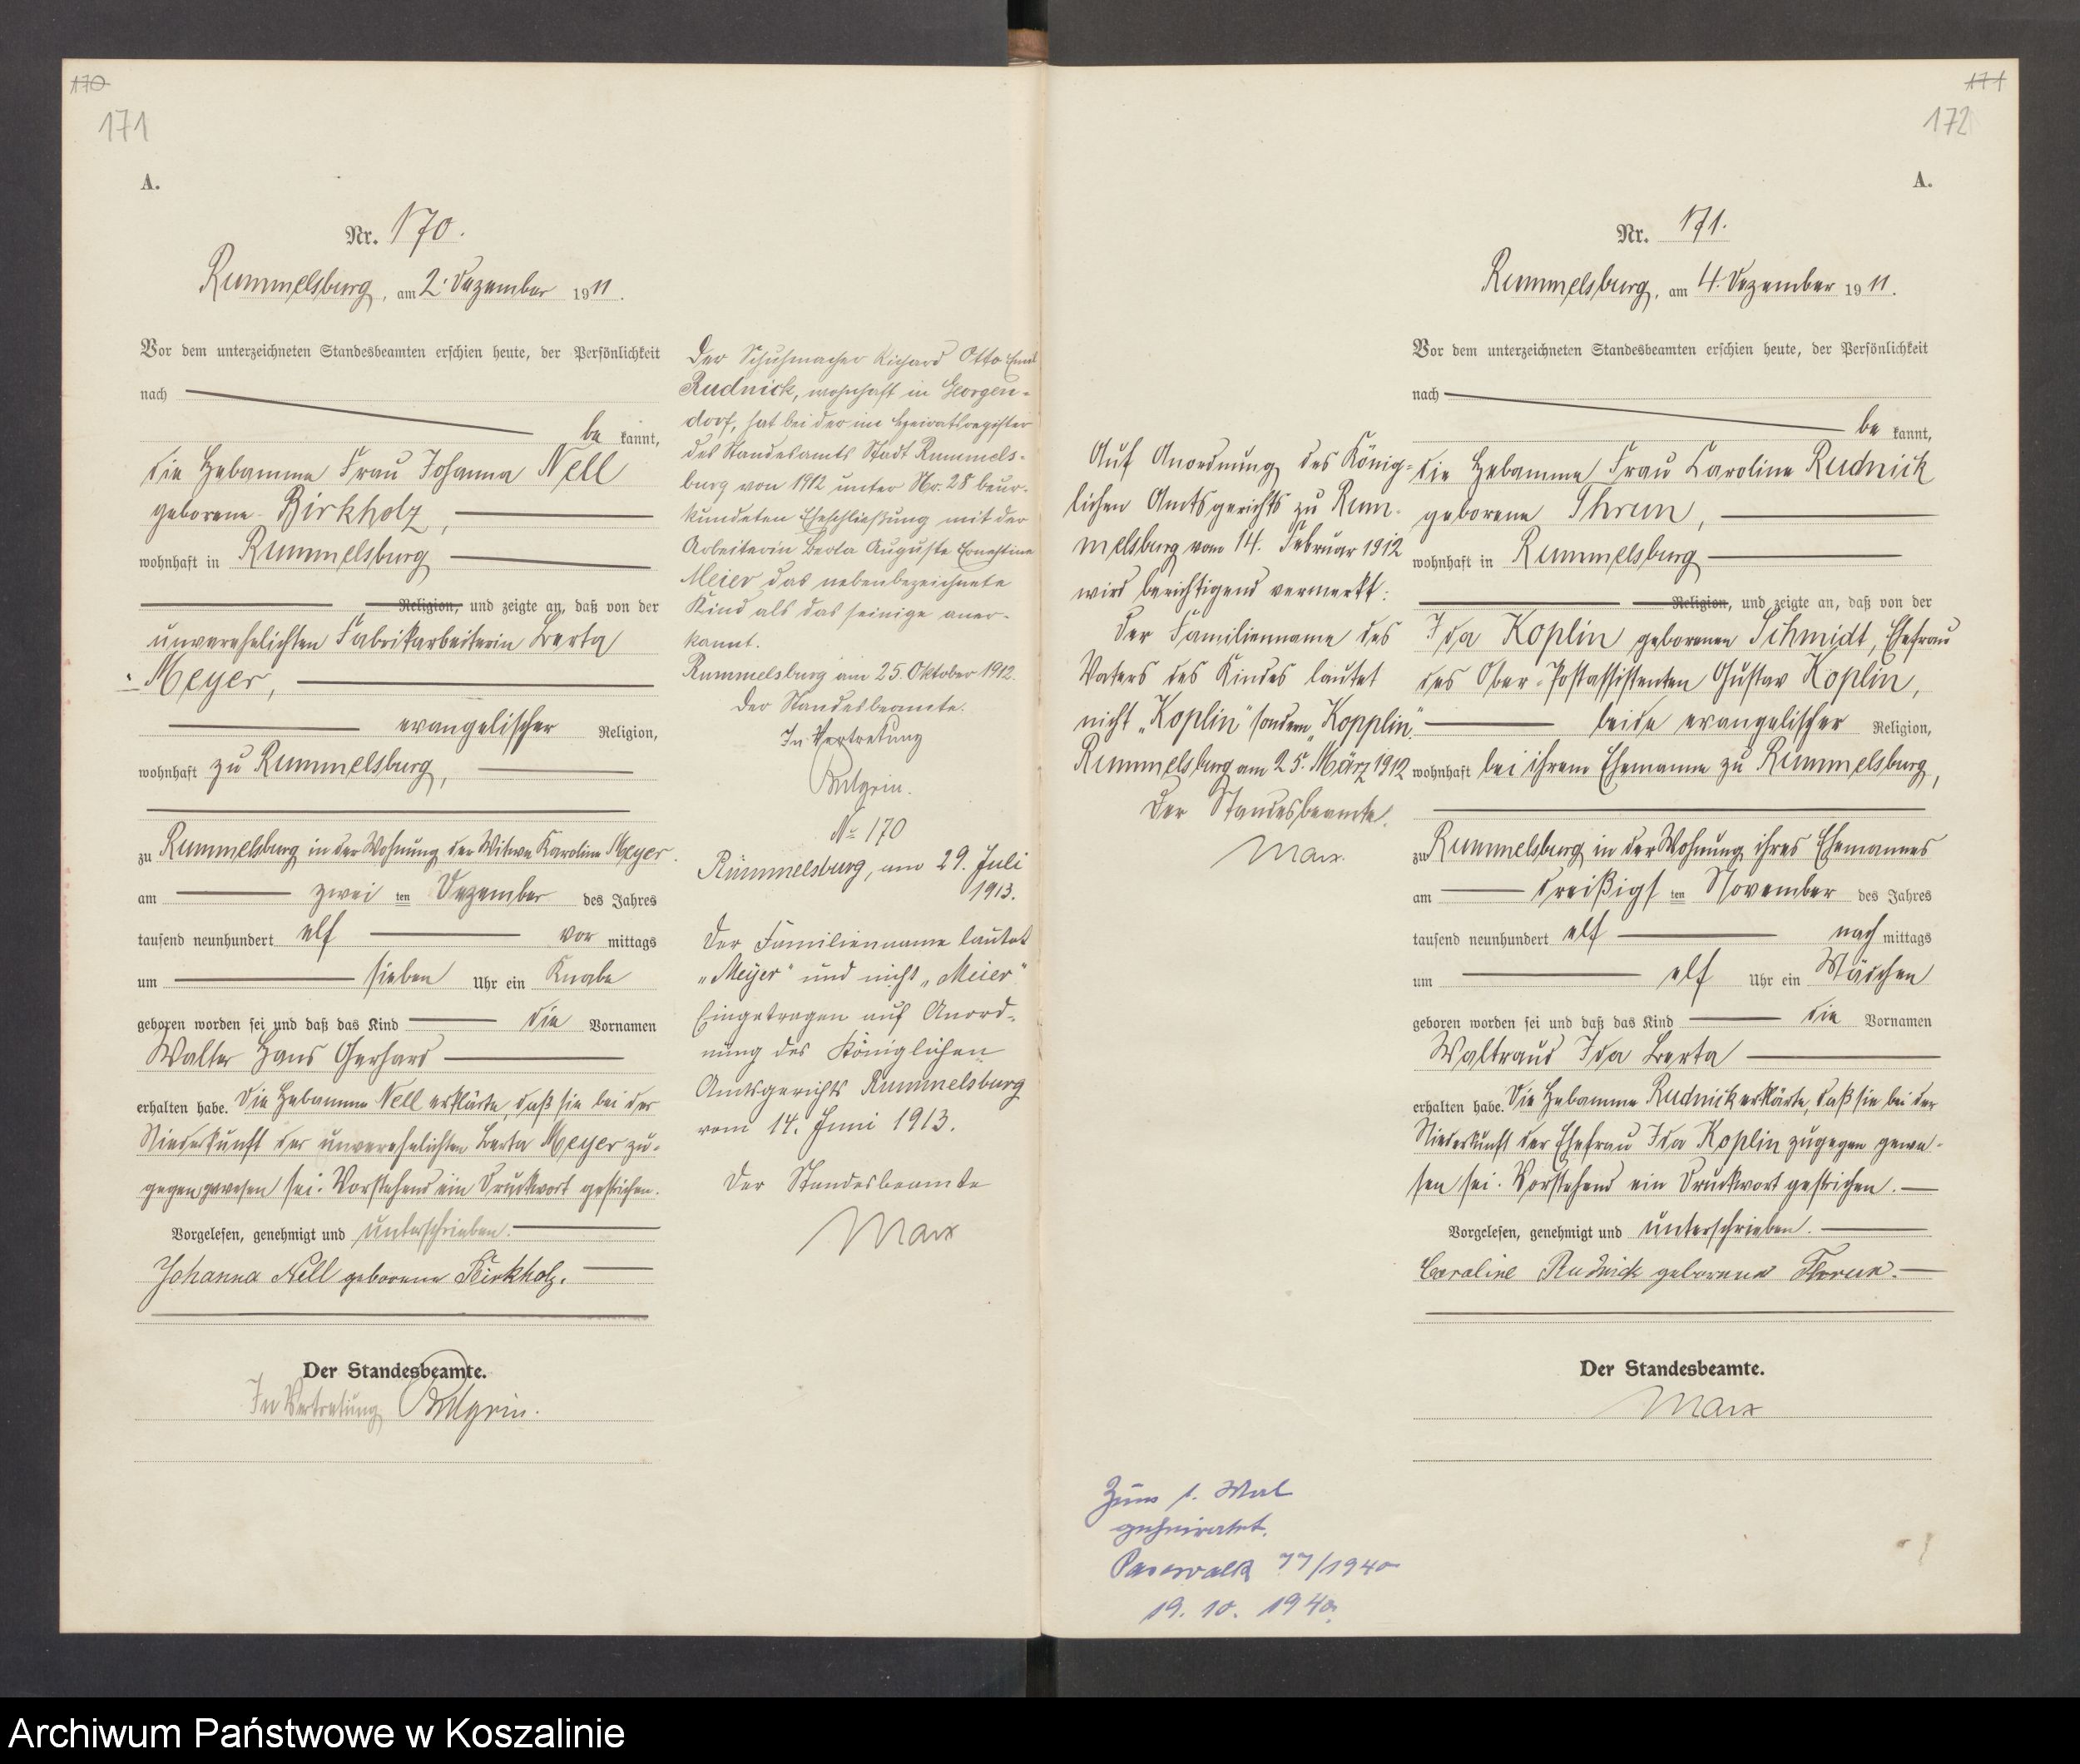 170
171
A.
Nr. 170.
Rummelsburg, am 2. Dezember 1911.
Vor dem unterzeichneten Standesbeamten erschien heute, der Persönlichkeit
nach
be kannt,
die Hebamme Frau Johanna Nell
geborene Birkholz,
wohnhaft in Rummelsburg
Religion, und zeigte an, daß von der
unverehelichten Fabrikarbeiterin Berta
Meyer,
evangelischer Religion,
wohnhaft zu Rummelsburg,
zu Rummelsburg in der Wohnung der Witwe Karoline Meyer.
am zwei ten Dezember des Jahres
tausend neunhundert elf vor mittags
um sieben Uhr ein Knabe
geboren worden sei und daß das Kind die Vornamen
Walter Hans Gerhard
erhalten habe. Die Hebamme Nell erklärte, daß sie bei der
Niederkunft der unverehelichten Berta Meyer zu-
gegen gewesen sei. Vorstehend ein Druckwort gestrichen.
Vorgelesen, genehmigt und unterschrieben.
Johanna Nell geborene Birkholz.
Der Standesbeamte.
In Vertretung
Der Schuhmacher Richard Otto Emil
Rudnick, wohnhaft in Georgen-
dorf, hat bei der im Heiratsregister
des Standesamts Stadt Rummels-
burg von 1912 unter Nr. 28 beur-
kundeten Eheschließung mit der
Arbeiterin Berta Auguste Ernestine
Meier das nebenbezeichnete
Kind als das seinige aner-
kannt.
Rummelsburg am 25. Oktober 1912.
Der Standesbeamte.
In Vertretung
No 170
Rummelsburg, am 29. Juli
1913.
Der Familienname lautet
„Meyer“ und nicht „Meier“
Eingetragen auf Anord-
nung des Königlichen
Amtsgerichts Rummelsburg
vom 14. Juni 1913.
Der Standesbeamte
Marx
171
172
A.
Nr. 171.
Rummelsburg, am 4. Dezember 1911.
Vor dem unterzeichneten Standesbeamten erschien heute, der Persönlichkeit
nach
be kannt,
die Hebamme Frau Caroline Rudnick
geborene Thrun,
wohnhaft in Rummelsburg
Religion, und zeigte an, daß von der
Ida Koplin geborenen Schmidt, Ehefrau
des Ober-Postassistenten Gustav Koplin,
beide evangelischer Religion,
wohnhaft bei ihrem Ehemanne zu Rummelsburg,
zu Rummelsburg in der Wohnung ihres Ehemannes
am dreißigs ten November des Jahres
tausend neunhundert elf nach mittags
um elf Uhr ein Mädchen
geboren worden sei und daß das Kind die Vornamen
Waltraud Ida Berta
erhalten habe. Die Hebamme Rudnick erklärte, daß sie bei der
Niederkunft der Ehefrau Ida Koplin zugegen gewe-
sen sei. Vorstehend ein Druckwort gestrichen.
Vorgelesen, genehmigt und unterschrieben.
Caroline Rudnick geborene Thrun.
Der Standesbeamte.
Marx
Auf Anordnung des König-
lichen Amtsgerichts zu Rum-
melsburg vom 14. Februar 1912
wird berichtigend vermerkt:
Der Familienname des
Vaters des Kindes lautet
nicht „Koplin“ sondern „Kopplin“.
Rummelsburg am 25. März 1912
Der Standesbeamte.
Marx.
Zum 1. Mal
geheiratet.
Pasewalk 77/1940
19. 10. 1940.
Archiwum Państwowe w Koszalinie